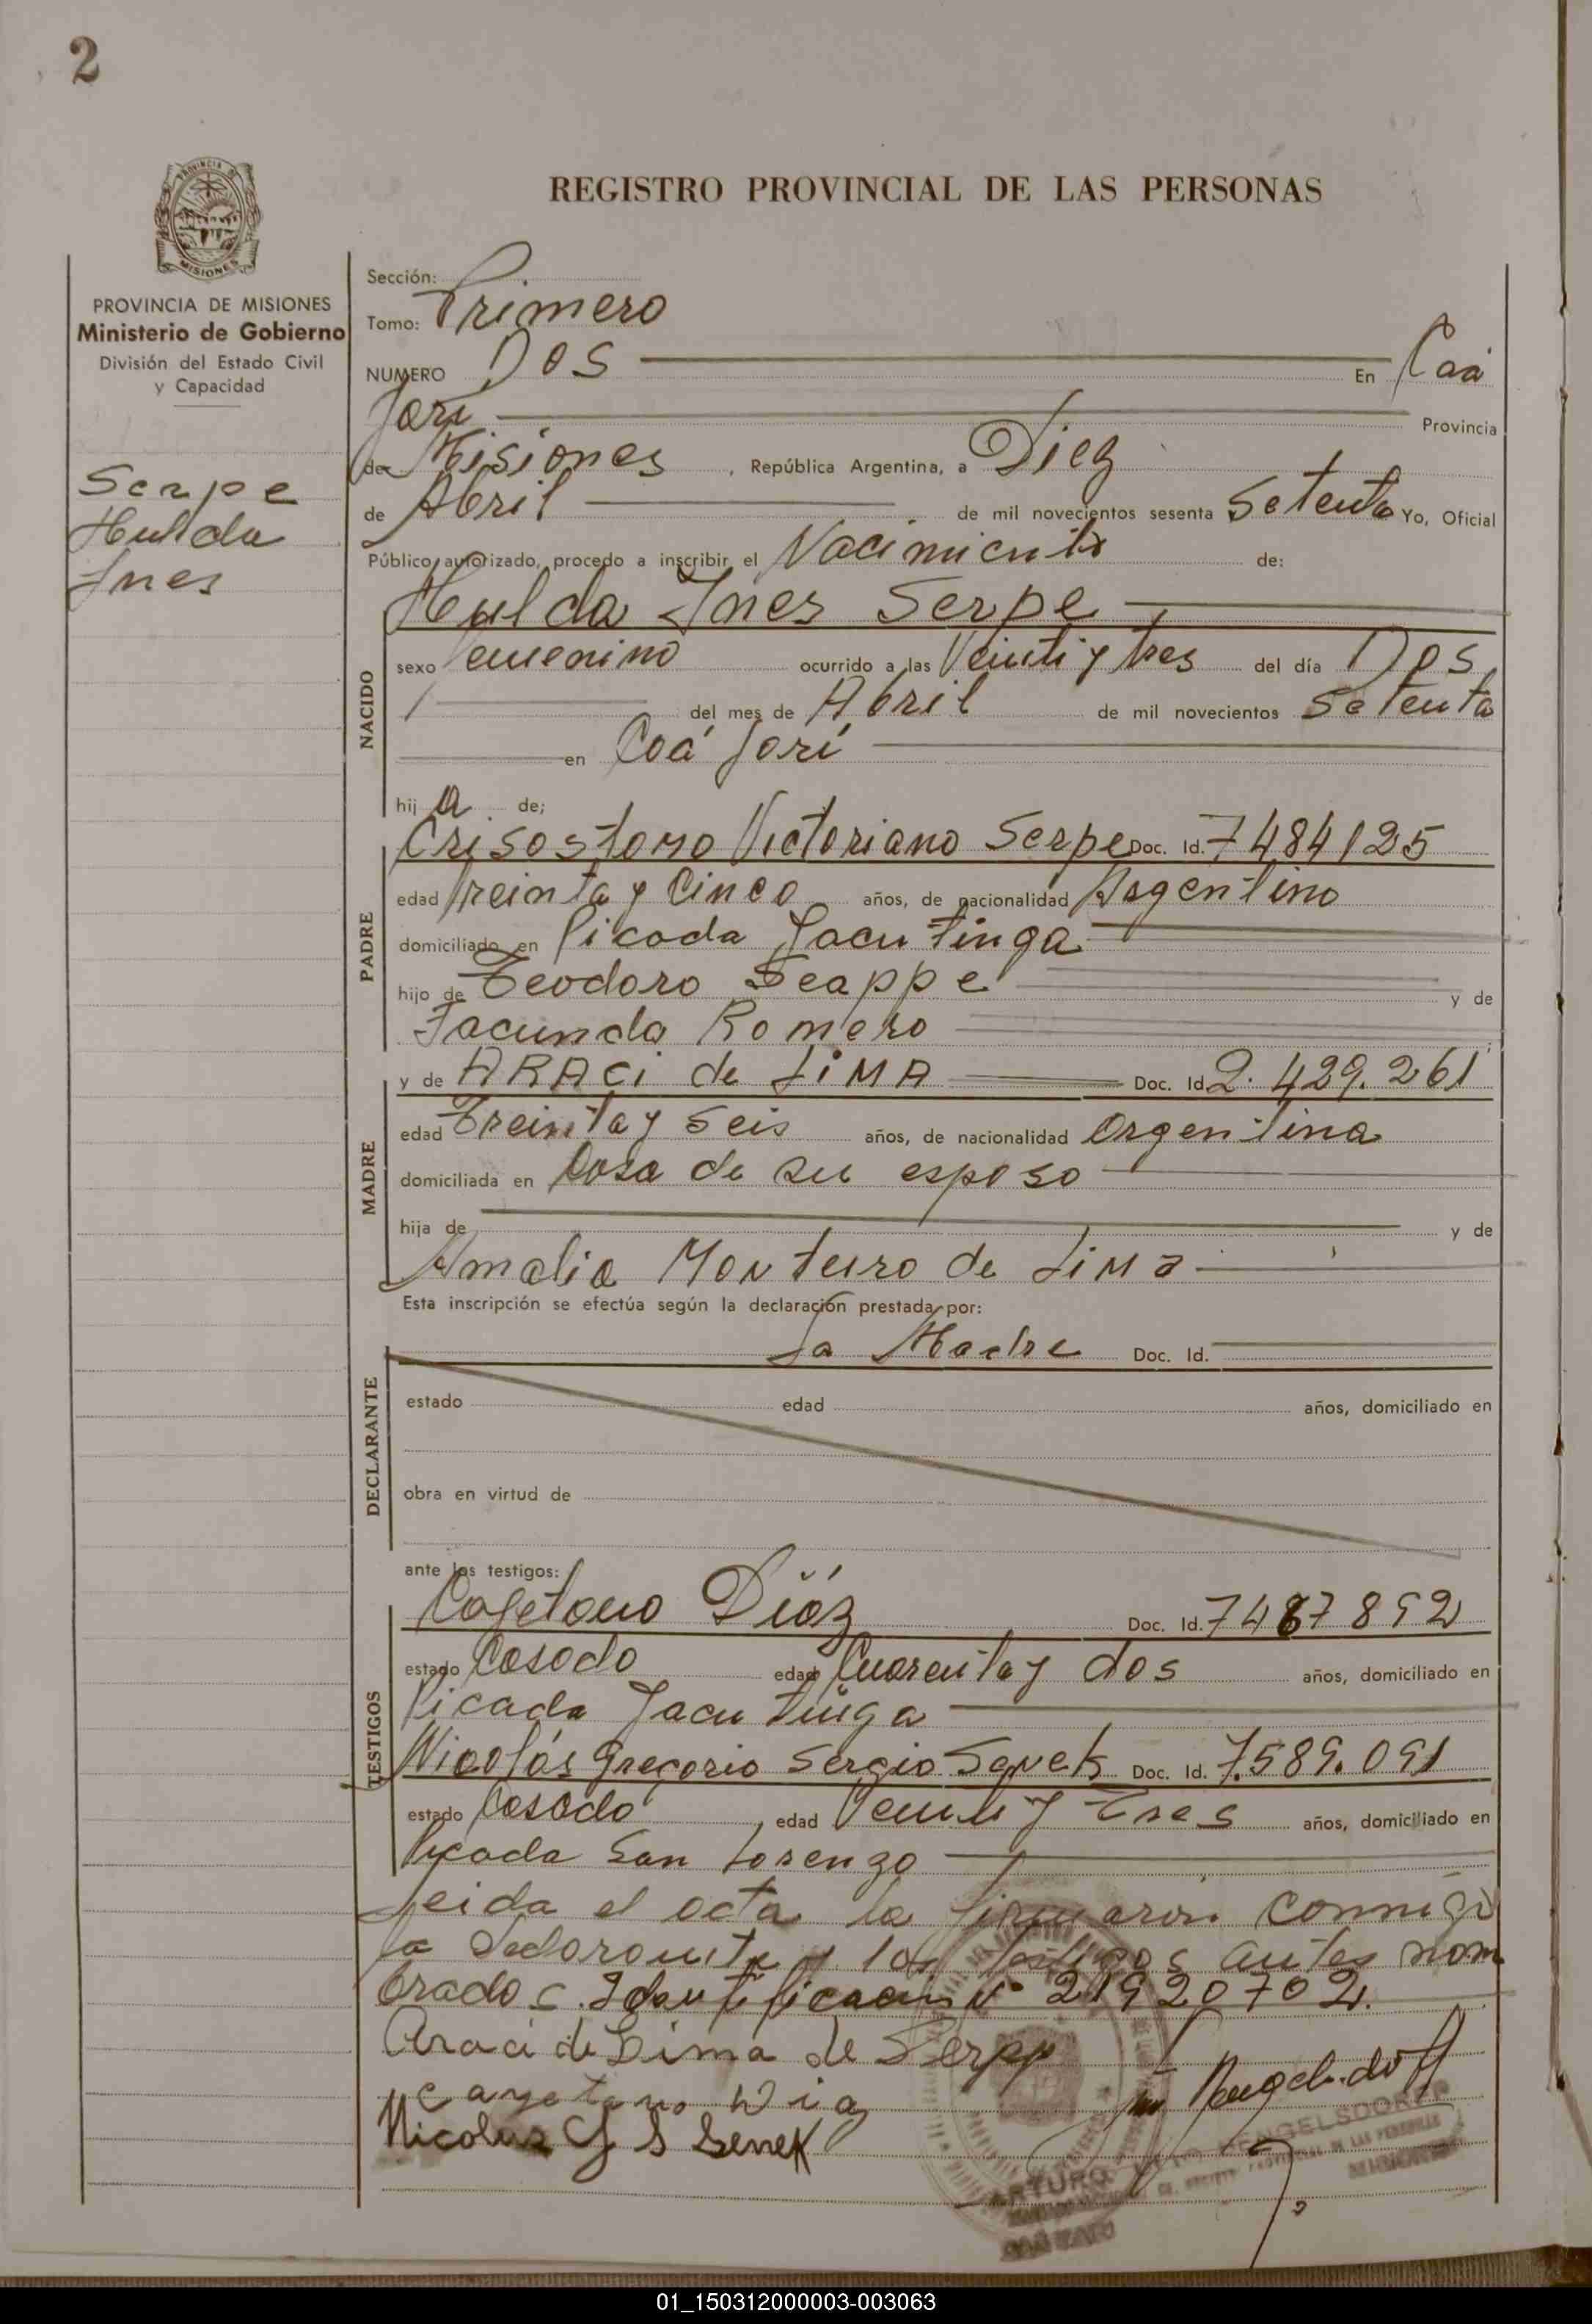 2
REGISTRO PROVINCIAL DE LAS PERSONAS
PROVINCIA DE MISIONES
MISIONES
PROVINCIA DE MISIONES
Ministerio de Gobierno
División del Estado Civil
y Capacidad
Serpe
Hulda
Ines
Sección:
Tomo: Primero
NUMERO Dos En Caá
Yarí Provincia
de Misiones, República Argentina, a Diez
de Abril de mil novecientos sesenta Setenta Yo, Oficial
Público autorizado, procedo a inscribir el Nacimiento de:
Hulda Ines Serpe
NACIDO
sexo Femenino ocurrido a las Veinti y tres del día Dos
del mes de Abril de mil novecientos Setenta
en Caá Yarí
hij a de;
PADRE
Crisostomo Victoriano Serpe Doc. Id. 7484125
edad Treinta y Cinco años, de nacionalidad Argentino
domiciliado en Picada Yacutinga
hijo de Teodoro Seappe y de
Facunda Romero
MADRE
y de ARACi de LiMA Doc. Id. 2.429.261
edad Treinta y Seis años, de nacionalidad Argentina
domiciliada en Casa de su esposo
hija de y de
Amalia Monteiro de Lima
Esta inscripción se efectúa según la declaración prestada por:
DECLARANTE
La Madre Doc. Id.
estado edad años, domiciliado en
obra en virtud de
ante los testigos:
TESTIGOS
Cayetano Diáz Doc. Id. 7467892
estado Casado edad Cuarenta y dos años, domiciliado en
Picada Yacutinga
Nicolás Gregorio Sergio Senek Doc. Id. 7.589.091
estado Casado edad Veinti y Tres años, domiciliado en
Picada San Lorenzo
Leida el acta la firmaron conmigo
la declarante y los testigos antes nom
brados. Identificación Nº 21920702.
Araci de Lima de Serpp
Cayetano Diaz
Nicolas G S Senek
ARTURO HENGELSDORFF
01_150312000003-003063